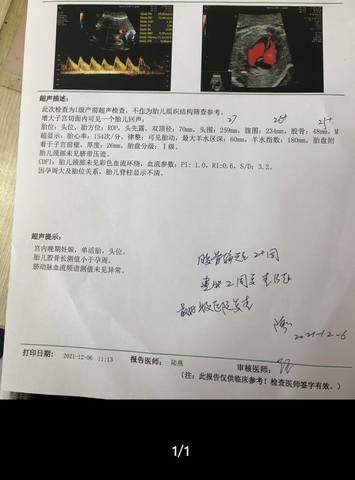 超声描述:
此次检查为Ⅰ级产前超声检查，不作为胎儿组织结构筛查参考。
增大子宫切面内可见一个胎儿回声：
27 25+ 25+
胎位：头位，胎方位：ROP，头先露，双顶径：70mm，头围：259mm，腹围：234mm，股骨：48mm，M
超显示：胎心率：154次/分，律整，可见胎动，最大羊水区深：60mm，羊水指数：180mm，胎盘附
着于子宫前壁，厚度：26mm，胎盘分级：Ⅰ级。
胎儿颈部未见脐带压迹。
CDFI：胎儿颈部未见彩色血流环绕，血流参数：PI：1.0，RI:0.6，S/D：3.2。
因孕周大及胎位关系，胎儿脊柱显示不清。
超声提示:
宫内晚期妊娠，单活胎，头位。
胎儿股骨长测值小于孕周。
脐动脉血流频谱测值未见异常。
2周
2周
2021-12-6
打印日期: 2021-12-06 11:13 报告医师: 陆燕 审核医师:
(注：此报告仅供临床参考！检查医师签字有效。)
1/1